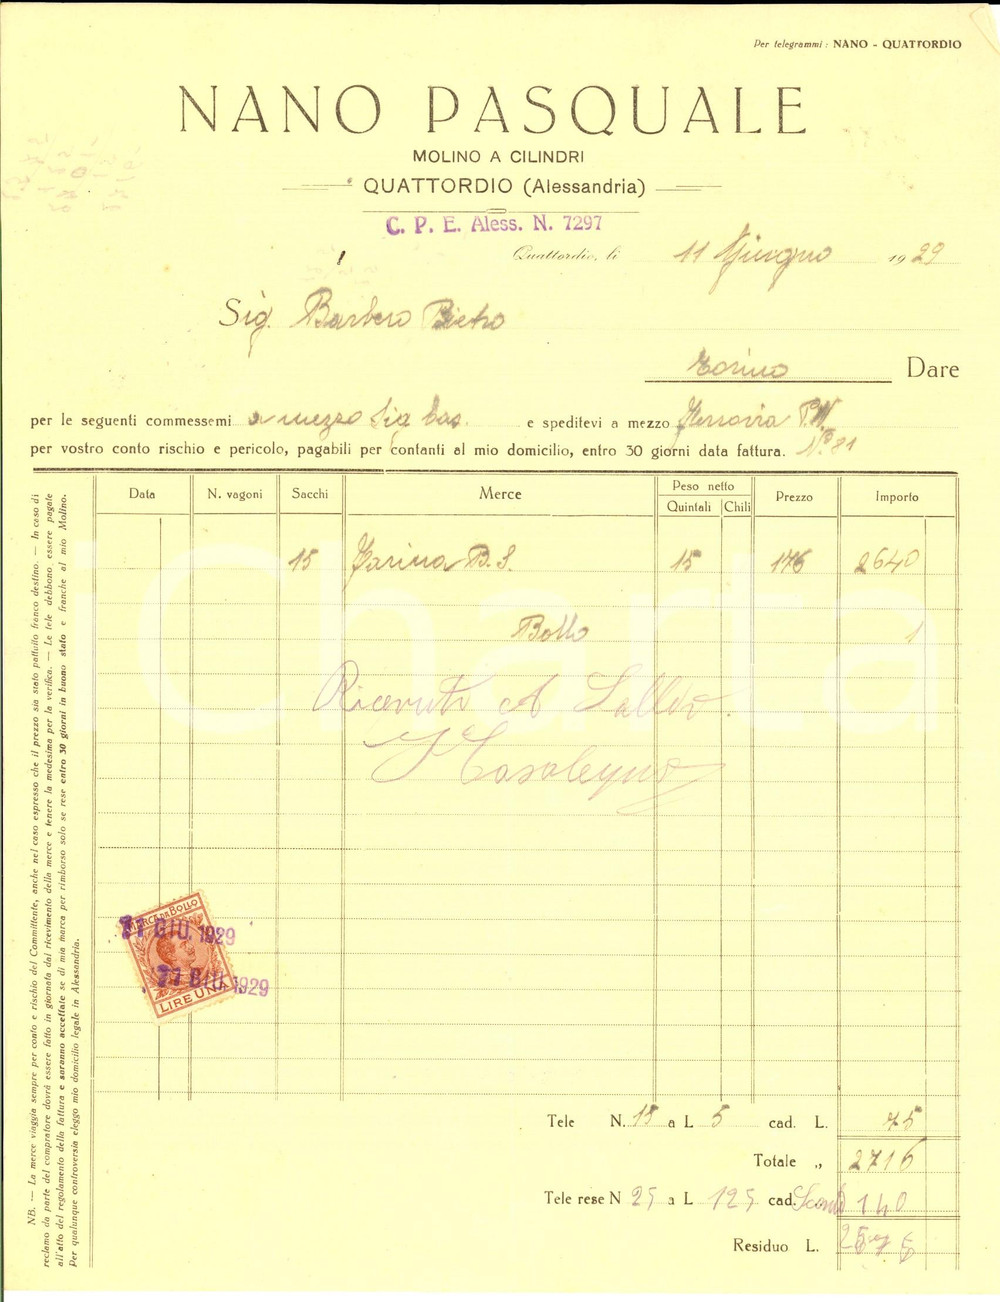 Per telegrammi: NANO - QUATTORDIO
NANO PASQUALE
MOLINO A CILINDRI
QUATTORDIO (Alessandria)
C. P. E. Aless. N. 7297
Quattordio, li 11 Giugno 1929
Sig. Barbero Pietro
Torino Dare
per le seguenti commessemi a mezzo Sig. e speditevi a mezzo Ferrovia P.V.
per vostro conto rischio e pericolo, pagabili per contanti al mio domicilio, entro 30 giorni data fattura. N° 81
Data N. vagoni Sacchi Merce Peso netto Quintali Chili Prezzo Importo
15 Farina B. S. 15 176 2640
Bollo 1
Ricevuto a Saldo.
Casalegno
MARCA DA BOLLO
LIRE UNA
11 GIU. 1929
11 GIU. 1929
Tele N. 15 a L 5 cad. L. 75
Totale „ 2716
Tele rese N 25 a L 125 cad. Sconto 140
Residuo L. 2576
NB. — La merce viaggia sempre per conto e rischio del Committente, anche nel caso espresso che il prezzo sia stato pattuito franco destino. — In caso di
reclamo da parte del compratore dovrà essere fatto in giornata dal ricevimento della merce e tenere la medesima per la verifica. — Le tele debbono essere pagate
all'atto del regolamento della fattura e saranno accettate se di mia marca per rimborso solo se rese entro 30 giorni in buono stato e franche al mio Molino.
Per qualunque controversia eleggo mio domicilio legale in Alessandria.
iCharta